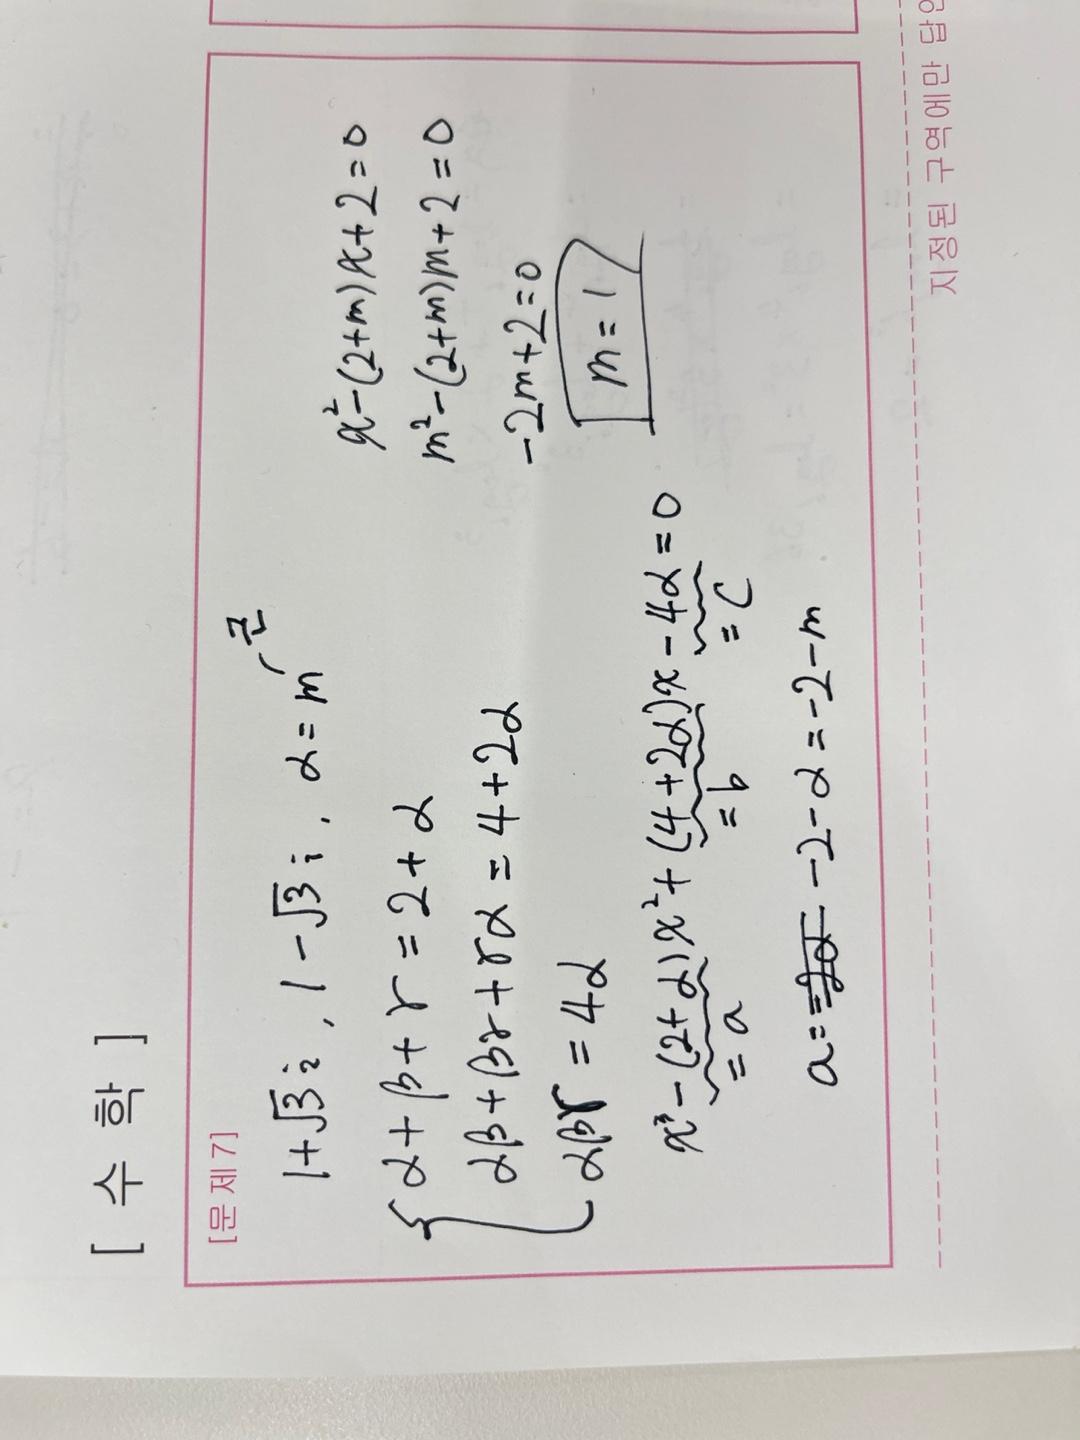 [ 수 학 ]
[문제 7]
1+√3i, 1-√3i, α=m 근
α+β+γ=2+α
αβ+βγ+γα=4+2α
αβγ=4α
x³-(2+α)x²+(4+2α)x-4α=0
=a =b =c
a= -2-α=-2-m
x²-(2+m)x+2=0
m²-(2+m)m+2=0
-2m+2=0
m=1
지정된 구역에만